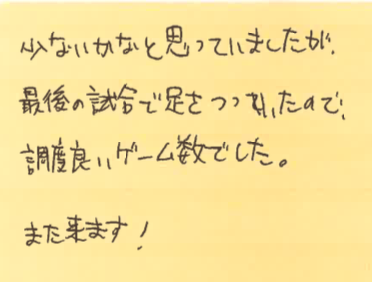 少ないかなと思っていましたが、
最後の試合で足をつってしまいたので、
調度良いゲーム数でした。
また来ます!